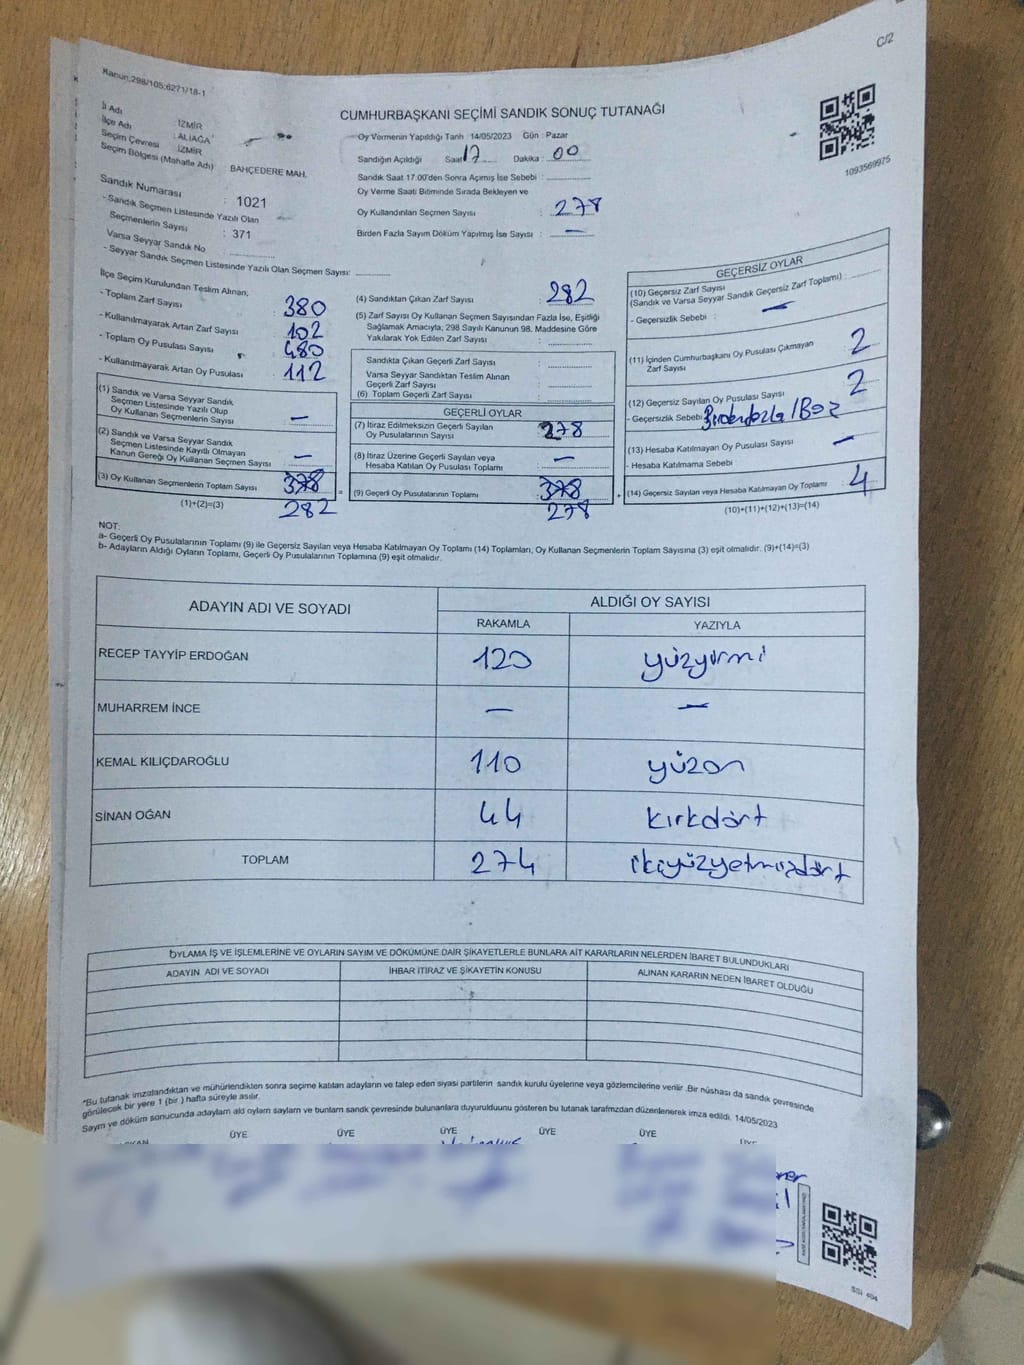 C/2
Kanun:298/105;6271/18-1
CUMHURBAŞKANI SEÇİMİ SANDIK SONUÇ TUTANAĞI
İl Adı : İZMİR
İlçe Adı : ALİAĞA
Seçim Çevresi : İZMİR
Seçim Bölgesi (Mahalle Adı) : BAHÇEDERE MAH.
Sandık Numarası : 1021
- Sandık Seçmen Listesinde Yazılı Olan
Seçmenlerin Sayısı : 371
Varsa Seyyar Sandık No :
- Seyyar Sandık Seçmen Listesinde Yazılı Olan Seçmen Sayısı:
Oy Vermenin Yapıldığı Tarih 14/05/2023 Gün : Pazar
Sandığın Açıldığı Saat 17 Dakika : 00
Sandık Saat 17.00'den Sonra Açımış İse Sebebi :
Oy Verme Saati Bitiminde Sırada Bekleyen ve
Oy Kullandırılan Seçmen Sayısı : 278
Birden Fazla Sayım Döküm Yapılmış İse Sayısı : —
1093569975
İlçe Seçim Kurulundan Teslim Alınan;
- Toplam Zarf Sayısı : 380
- Kullanılmayarak Artan Zarf Sayısı : 102
- Toplam Oy Pusulası Sayısı : 480
- Kullanılmayarak Artan Oy Pusulası : 112
(1) Sandık ve Varsa Seyyar Sandık
Seçmen Listesinde Yazılı Olup
Oy Kullanan Seçmenlerin Sayısı : —
(2) Sandık ve Varsa Seyyar Sandık
Seçmen Listesinde Kayıtlı Olmayan
Kanun Gereği Oy Kullanan Seçmen Sayısı : —
(3) Oy Kullanan Seçmenlerin Toplam Sayısı : 378
(1)+(2)=(3) 282
(4) Sandıktan Çıkan Zarf Sayısı : 282
(5) Zarf Sayısı Oy Kullanan Seçmen Sayısından Fazla İse, Eşitliği
Sağlamak Amacıyla, 298 Sayılı Kanunun 98. Maddesine Göre
Yakılarak Yok Edilen Zarf Sayısı :
Sandıkta Çıkan Geçerli Zarf Sayısı :
Varsa Seyyar Sandıktan Teslim Alınan
Geçerli Zarf Sayısı :
(6) Toplam Geçerli Zarf Sayısı :
GEÇERLİ OYLAR
(7) İtiraz Edilmeksizin Geçerli Sayılan
Oy Pusulalarının Sayısı : 278
(8) İtiraz Üzerine Geçerli Sayılan veya
Hesaba Katılan Oy Pusulası Toplamı : —
= (9) Geçerli Oy Pusulalarının Toplamı : 378
278
GEÇERSİZ OYLAR
(10) Geçersiz Zarf Sayısı
(Sandık ve Varsa Seyyar Sandık Geçersiz Zarf Toplamı) :
- Geçersizlik Sebebi : —
(11) İçinden Cumhurbaşkanı Oy Pusulası Çıkmayan
Zarf Sayısı : 2
(12) Geçersiz Sayılan Oy Pusulası Sayısı : 2
- Geçersizlik Sebebi
(13) Hesaba Katılmayan Oy Pusulası Sayısı : —
- Hesaba Katılmama Sebebi
+ (14) Geçersiz Sayılan veya Hesaba Katılmayan Oy Toplamı : 4
(10)+(11)+(12)+(13)=(14)
NOT:
a- Geçerli Oy Pusulalarının Toplamı (9) ile Geçersiz Sayılan veya Hesaba Katılmayan Oy Toplamı (14) Toplamları, Oy Kullanan Seçmenlerin Toplam Sayısına (3) eşit olmalıdır. (9)+(14)=(3)
b- Adayların Aldığı Oyların Toplamı, Geçerli Oy Pusulalarının Toplamına (9) eşit olmalıdır.
ADAYIN ADI VE SOYADI ALDIĞI OY SAYISI
RAKAMLA YAZIYLA
RECEP TAYYİP ERDOĞAN 120 yüzyirmi
MUHARREM İNCE — —
KEMAL KILIÇDAROĞLU 110 yüzon
SİNAN OĞAN 44 kırkdört
TOPLAM 274 ikiyüzyetmişdört
OYLAMA İŞ VE İŞLEMLERİNE VE OYLARIN SAYIM VE DÖKÜMÜNE DAİR ŞİKAYETLERLE BUNLARA AİT KARARLARIN NELERDEN İBARET BULUNDUKLARI
ADAYIN ADI VE SOYADI İHBAR İTİRAZ VE ŞİKAYETİN KONUSU ALINAN KARARIN NEDEN İBARET OLDUĞU
*Bu tutanak imzalandıktan ve mühürlendikten sonra seçime katılan adayların ve talep eden siyasi partilerin sandık kurulu üyelerine veya gözlemcilerine verilir .Bir nüshası da sandık çevresinde
görülecek bir yere 1 (bir ) hafta süreyle asılır.
Sayım ve döküm sonucunda adayların aldı oyların sayların ve bunların sandk çevresinde bulunanlara duyurulduunu gösteren bu tutanak tarafmzdan düzenlenerek imza edildi. 14/05/2023
ÜYE ÜYE ÜYE ÜYE ÜYE